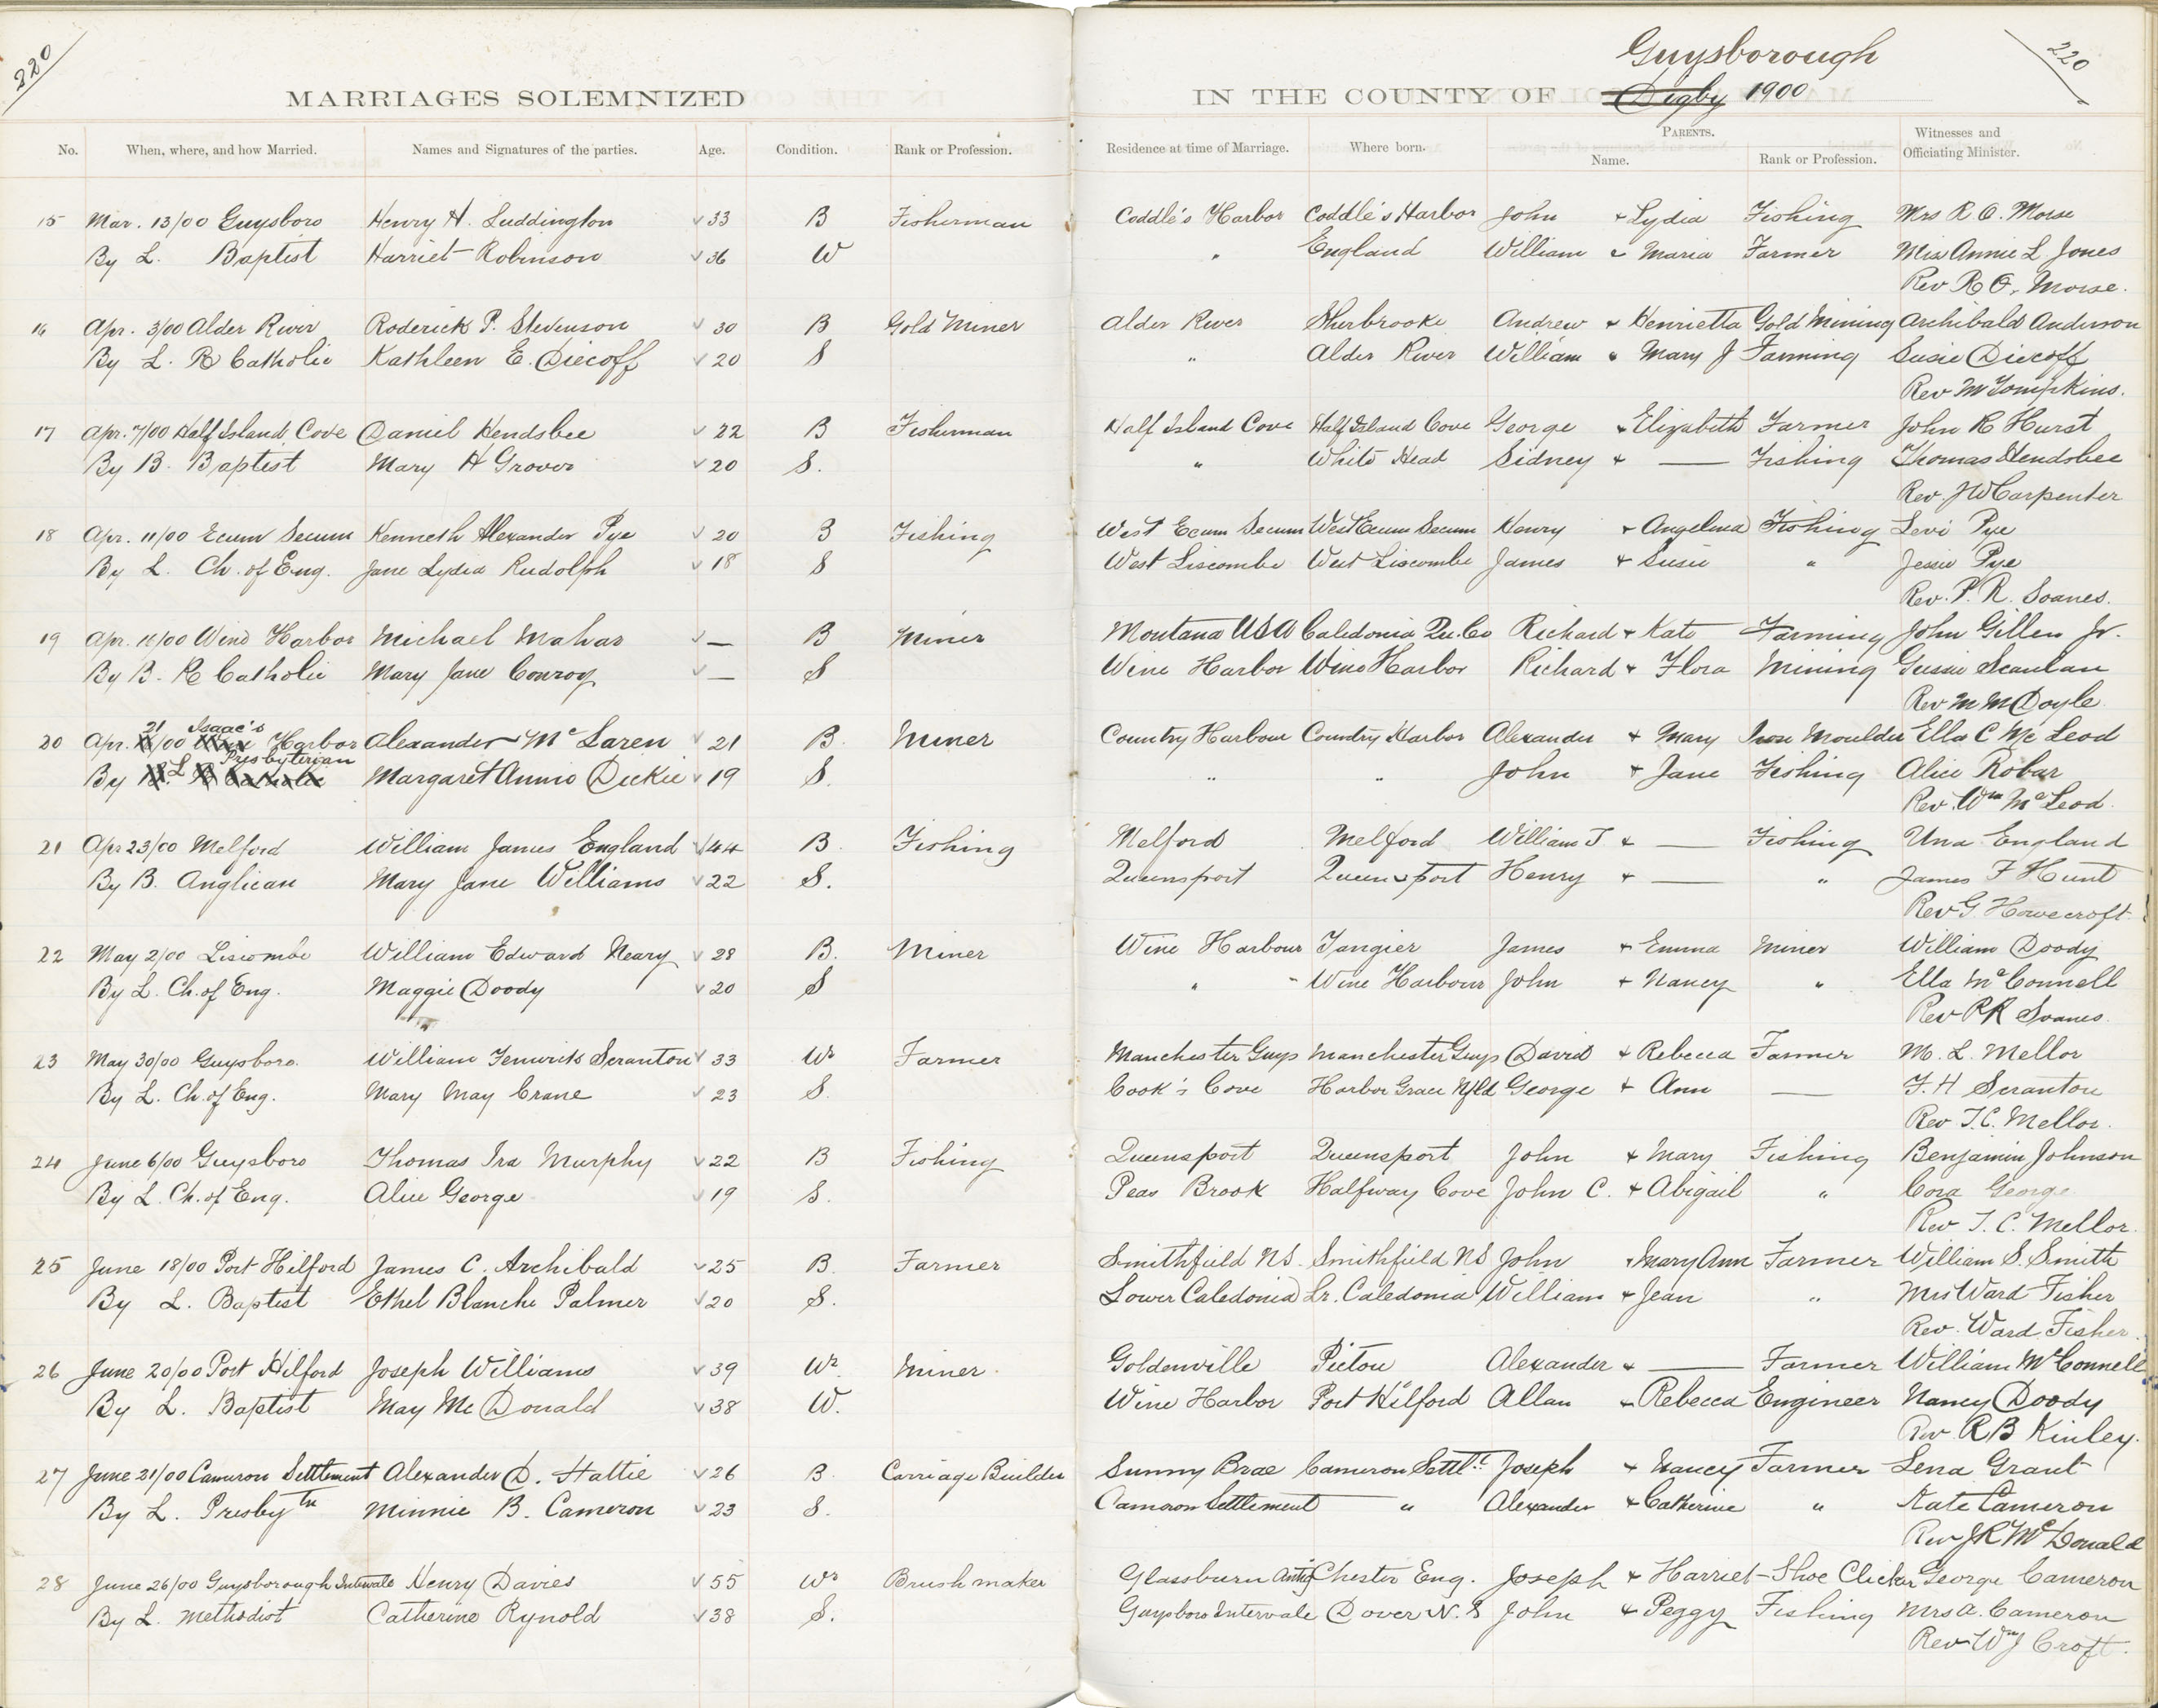 220
Guysborough
220
MARRIAGES SOLEMNIZED IN THE COUNTY OF Digby 1900
No. When, where, and how Married. Names and Signatures of the parties. Age. Condition. Rank or Profession. Residence at time of Marriage. Where born. PARENTS. Name. Rank or Profession. Witnesses and Officiating Minister.
15 Mar. 13/00 Guysboro Henry H. Luddington 33 B Fisherman Coddle's Harbor Coddle's Harbor John + Lydia Fishing Mrs R O. Morse
By L. Baptist Harriet Robinson 36 W " England William + Maria Farmer Miss Annie L Jones
Rev R O. Morse.
16 Apr. 3/00 Alder River Roderick P. Stevenson 30 B Gold Miner Alder River Sherbrooke Andrew + Henrietta Gold Mining Archibald Anderson
By L. R Catholic Kathleen E. Diecoff 20 S " Alder River William + Mary J Farming Susie Diecoff
Rev M Tompkins.
17 Apr. 7/00 Half Island Cove Daniel Hendsbee 22 B Fisherman Half Island Cove Half Island Cove George + Elizabeth Farmer John R Hurst
By B. Baptist Mary H Grover 20 S. " White Head Sidney + — Fishing Thomas Hendsbee
Rev. J W Carpenter
18 Apr. 11/00 Ecum Secum Kenneth Alexander Pye 20 B Fishing West Ecum Secum West Ecum Secum Henry + Angelina Fishing Levi Pye
By L. Ch. of Eng. Jane Lydia Rudolph 18 S West Liscombe West Liscombe James + Susie " Jessie Pye
Rev. P. R. Soanes.
19 Apr. 11/00 Wine Harbor Michael Mahar — B Miner Montana USA Caledonia Qu. Co Richard + Kate Farming John Gillen Jr.
By B. R Catholic Mary Jane Conroy — S Wine Harbor Wine Harbor Richard + Flora Mining Gussie Scanlan
Rev M M Doyle
20 Apr. 21/00 Isaac's Harbor Alexander Mc Laren 21 B. Miner Country Harbour Country Harbor Alexander + Mary Iron Moulder Ella C Mc Leod
By L Presbyterian Margaret Annie Dickie 19 S. " " John + Jane Fishing Alice Robar
Rev. Wm McLeod.
21 Apr 23/00 Melford William James England 44 B. Fishing Melford Melford William J + — Fishing Una England
By B. Anglican Mary Jane Williams 22 S. Queensport Queensport Henry + — " James F Hunt
Rev G. Howecroft.
22 May 2/00 Liscombe William Edward Neary 28 B. Miner Wine Harbour Tangier James + Emma Miner William Doody
By L. Ch. of Eng. Maggie Doody 20 S " Wine Harbour John + Nancy " Ella McConnell
Rev P R Soanes.
23 May 30/00 Guysboro. William Scranton 33 Wr Farmer Manchester Guys Manchester Guys David + Rebecca Farmer M. L. Mellor
By L. Ch. of Eng. Mary May Crane 23 S. Cook's Cove Harbor Grace Nfld George + Ann — F. H Scranton
Rev. T. C. Mellor.
24 June 6/00 Guysboro Thomas Ira Murphy 22 B Fishing Queensport Queensport John + Mary Fishing Benjamin Johnson
By L. Ch. of Eng. Alice George 19 S. Peas Brook Halfway Cove John C. + Abigail " Cora George
Rev T. C. Mellor.
25 June 18/00 Port Hilford James C. Archibald 25 B. Farmer Smithfield N.S. Smithfield NS John + Mary Ann Farmer William S. Smith
By L. Baptist Ethel Blanche Palmer 20 S. Lower Caledonia Lr. Caledonia William + Jean " Mrs Ward Fisher
Rev. Ward Fisher.
26 June 20/00 Port Hilford Joseph Williams 39 Wr Miner. Goldenville Pictou Alexander + — Farmer William McConnell
By L. Baptist May Mc Donald 38 W. Wine Harbor Port Hilford Allan + Rebecca Engineer Nancy Doody
Rev R B Kinley.
27 June 21/00 Cameron Settlement Alexander D. Hattie 26 B. Carriage Builder Sunny Brae Cameron Settlt Joseph + Nancy Farmer Lena Grant
By L. Presbytn Minnie B. Cameron 23 S. Cameron Settlement " Alexander + Catherine " Kate Cameron
Rev J R McDonald
28 June 26/00 Guysborough Intervale Henry Davies 55 Wr Brush maker Glassburn Antig Chester Eng. Joseph + Harriet Shoe Clicker George Cameron
By L. Methodist Catherine Rynold 38 S. Guysboro Intervale Dover N.S John + Peggy Fishing Mrs A. Cameron
Rev Wm J Croft.